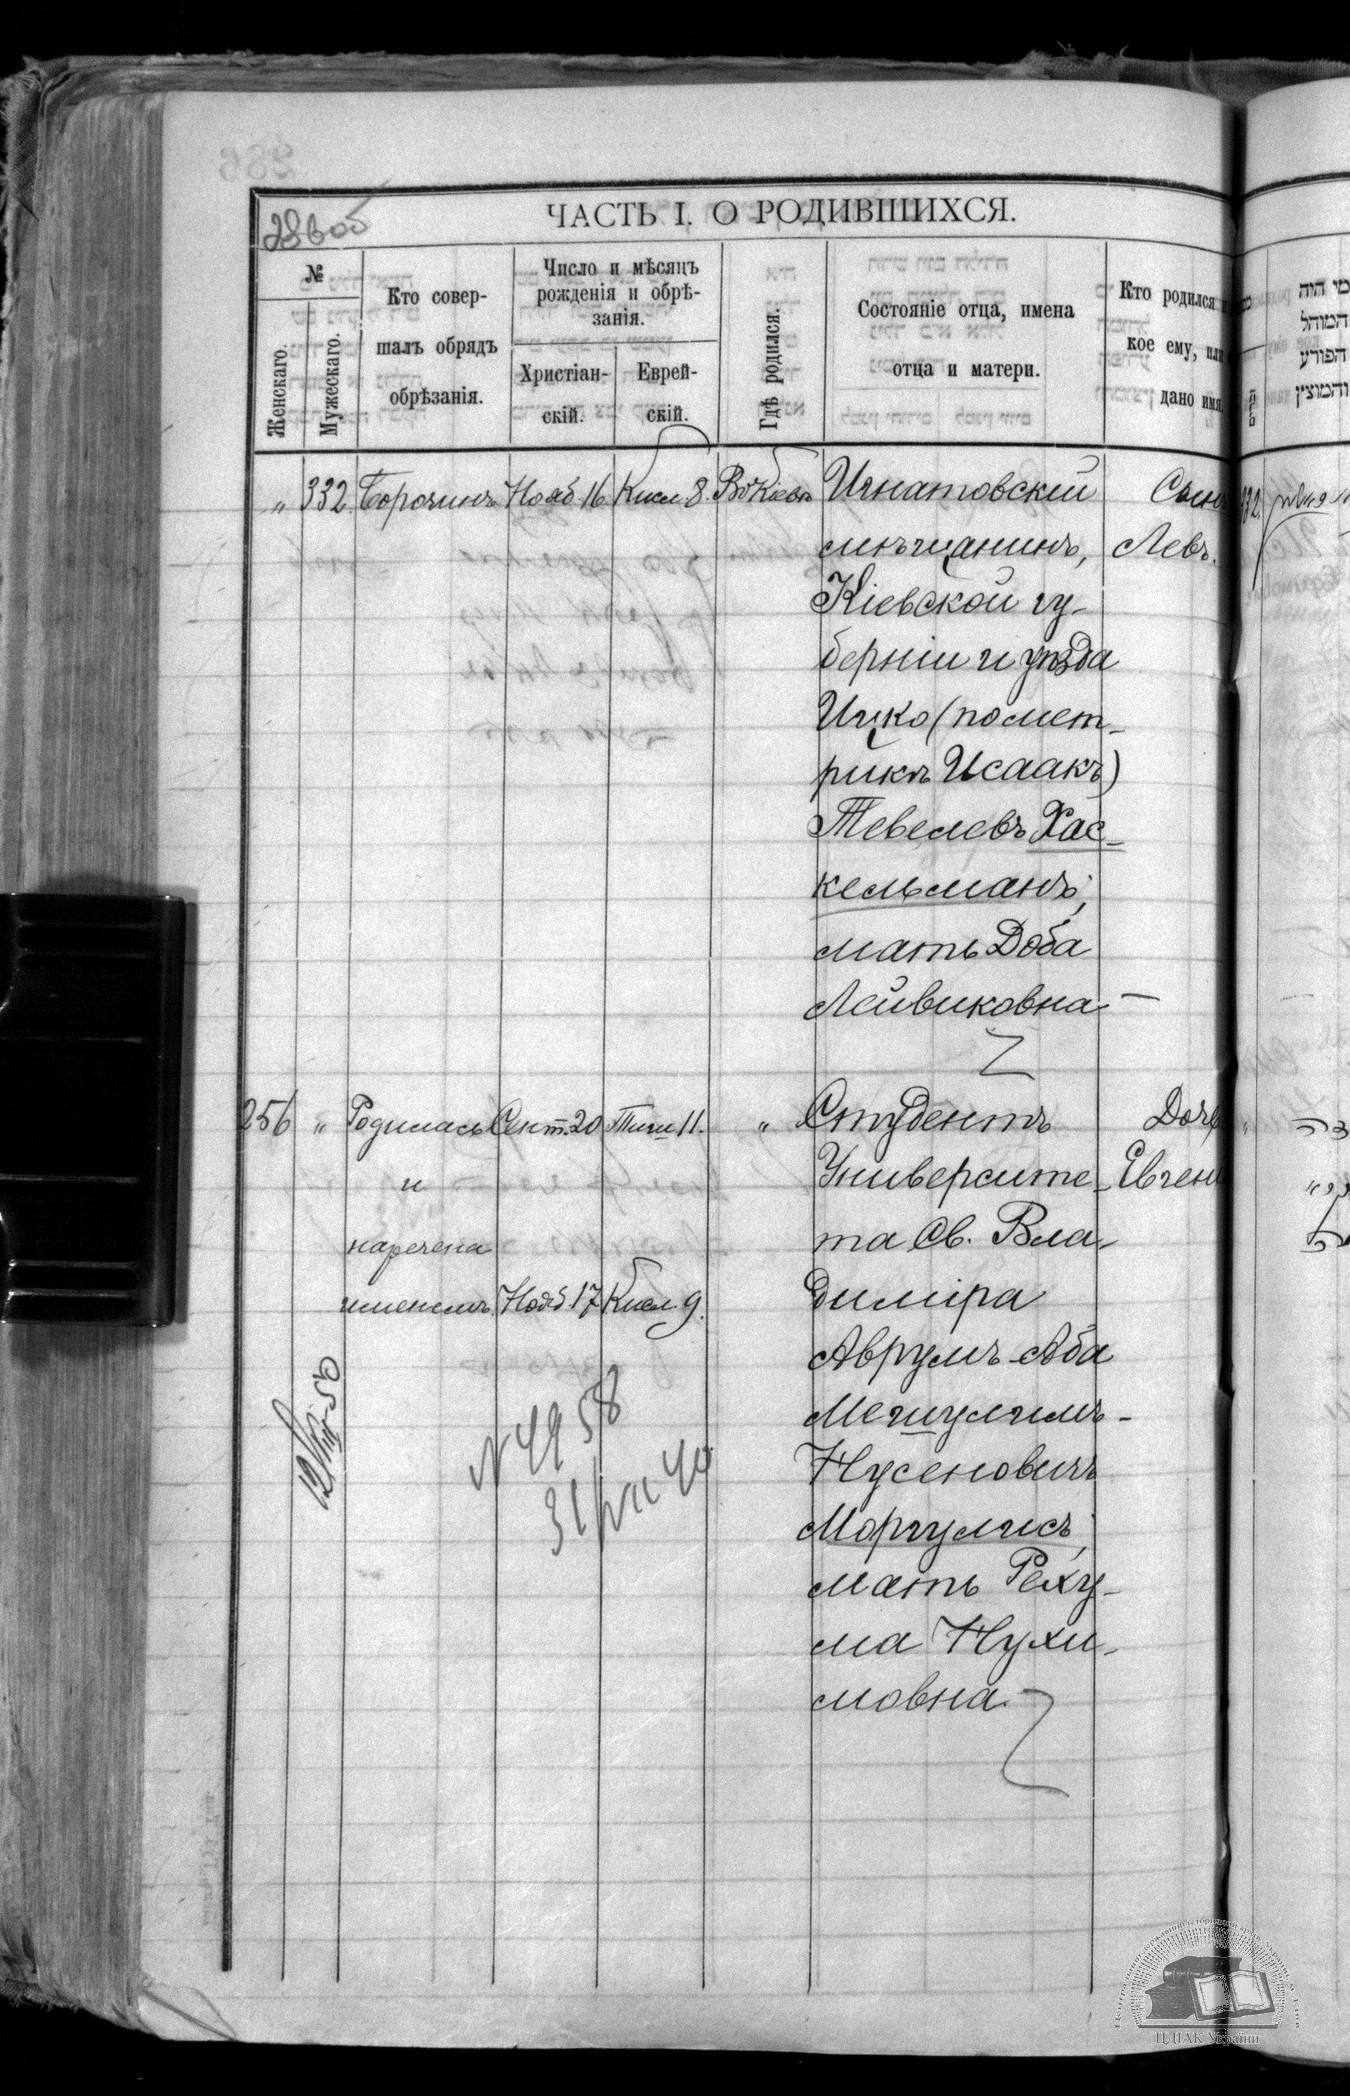 ЧАСТЬ I. О РОДИВШИХСЯ.
№
Женскаго.
Мужескаго.
Кто совер-
шалъ обрядъ
обрѣзанія.
Число и мѣсяцъ
рожденія и обрѣ-
занія.
Христіан-
скій.
Еврей-
скій.
Гдѣ родился.
Состояніе отца, имена
отца и матери.
Кто родился и
кое ему, или
дано имя.
מי היה
המוהל
הפורע
והמוצץ
„ 332. Борочинъ Нояб. 16 Кисл. 8. Въ Кіевѣ
Игнатовскій
мѣщанинъ,
Кіевской гу-
берніи и уѣзда
Ицко (по мет-
рикѣ Исаакъ)
Тевелевъ Хас-
кельманъ,
мать Доба
Лейвиковна —
Сынъ
Левъ.
256 „ Родилась Сент. 20 Тиш. 11. „
и
наречена
именемъ Нояб. 17 Кисл. 9.
Студентъ
Университе-
та Св. Вла-
диміра
Аврумъ-Аба
Мешулимъ-
Нусеновичъ
Моргулисъ,
мать Реху-
ма Нухи-
мовна.
Дочь
Евгені
12/VIII-50
N 4958
31/VII 40
ЦДІАК України